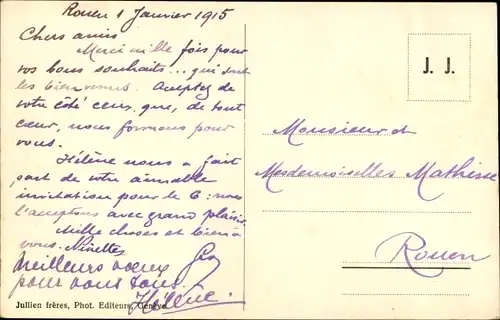 Rouen 1 Janvier 1915
Chers amis
Merci mille fois pour
vos bons souhaits... qui sont
les bienvenus. Acceptez de
votre côté ceux, que, de tout
cœur, nous formons pour
vous.
Hélène nous a fait
part de votre aimable
invitation pour le 6 : nous
l'acceptons avec grand plaisir.
Mille choses et bien à
vous. Ninettes
Meilleurs vœux
pour vous tous.
Hélène.
Jullien frères, Phot. Editeurs, Genève
J. J.
Monsieur et
Mesdemoiselles Mathisse
Rouen